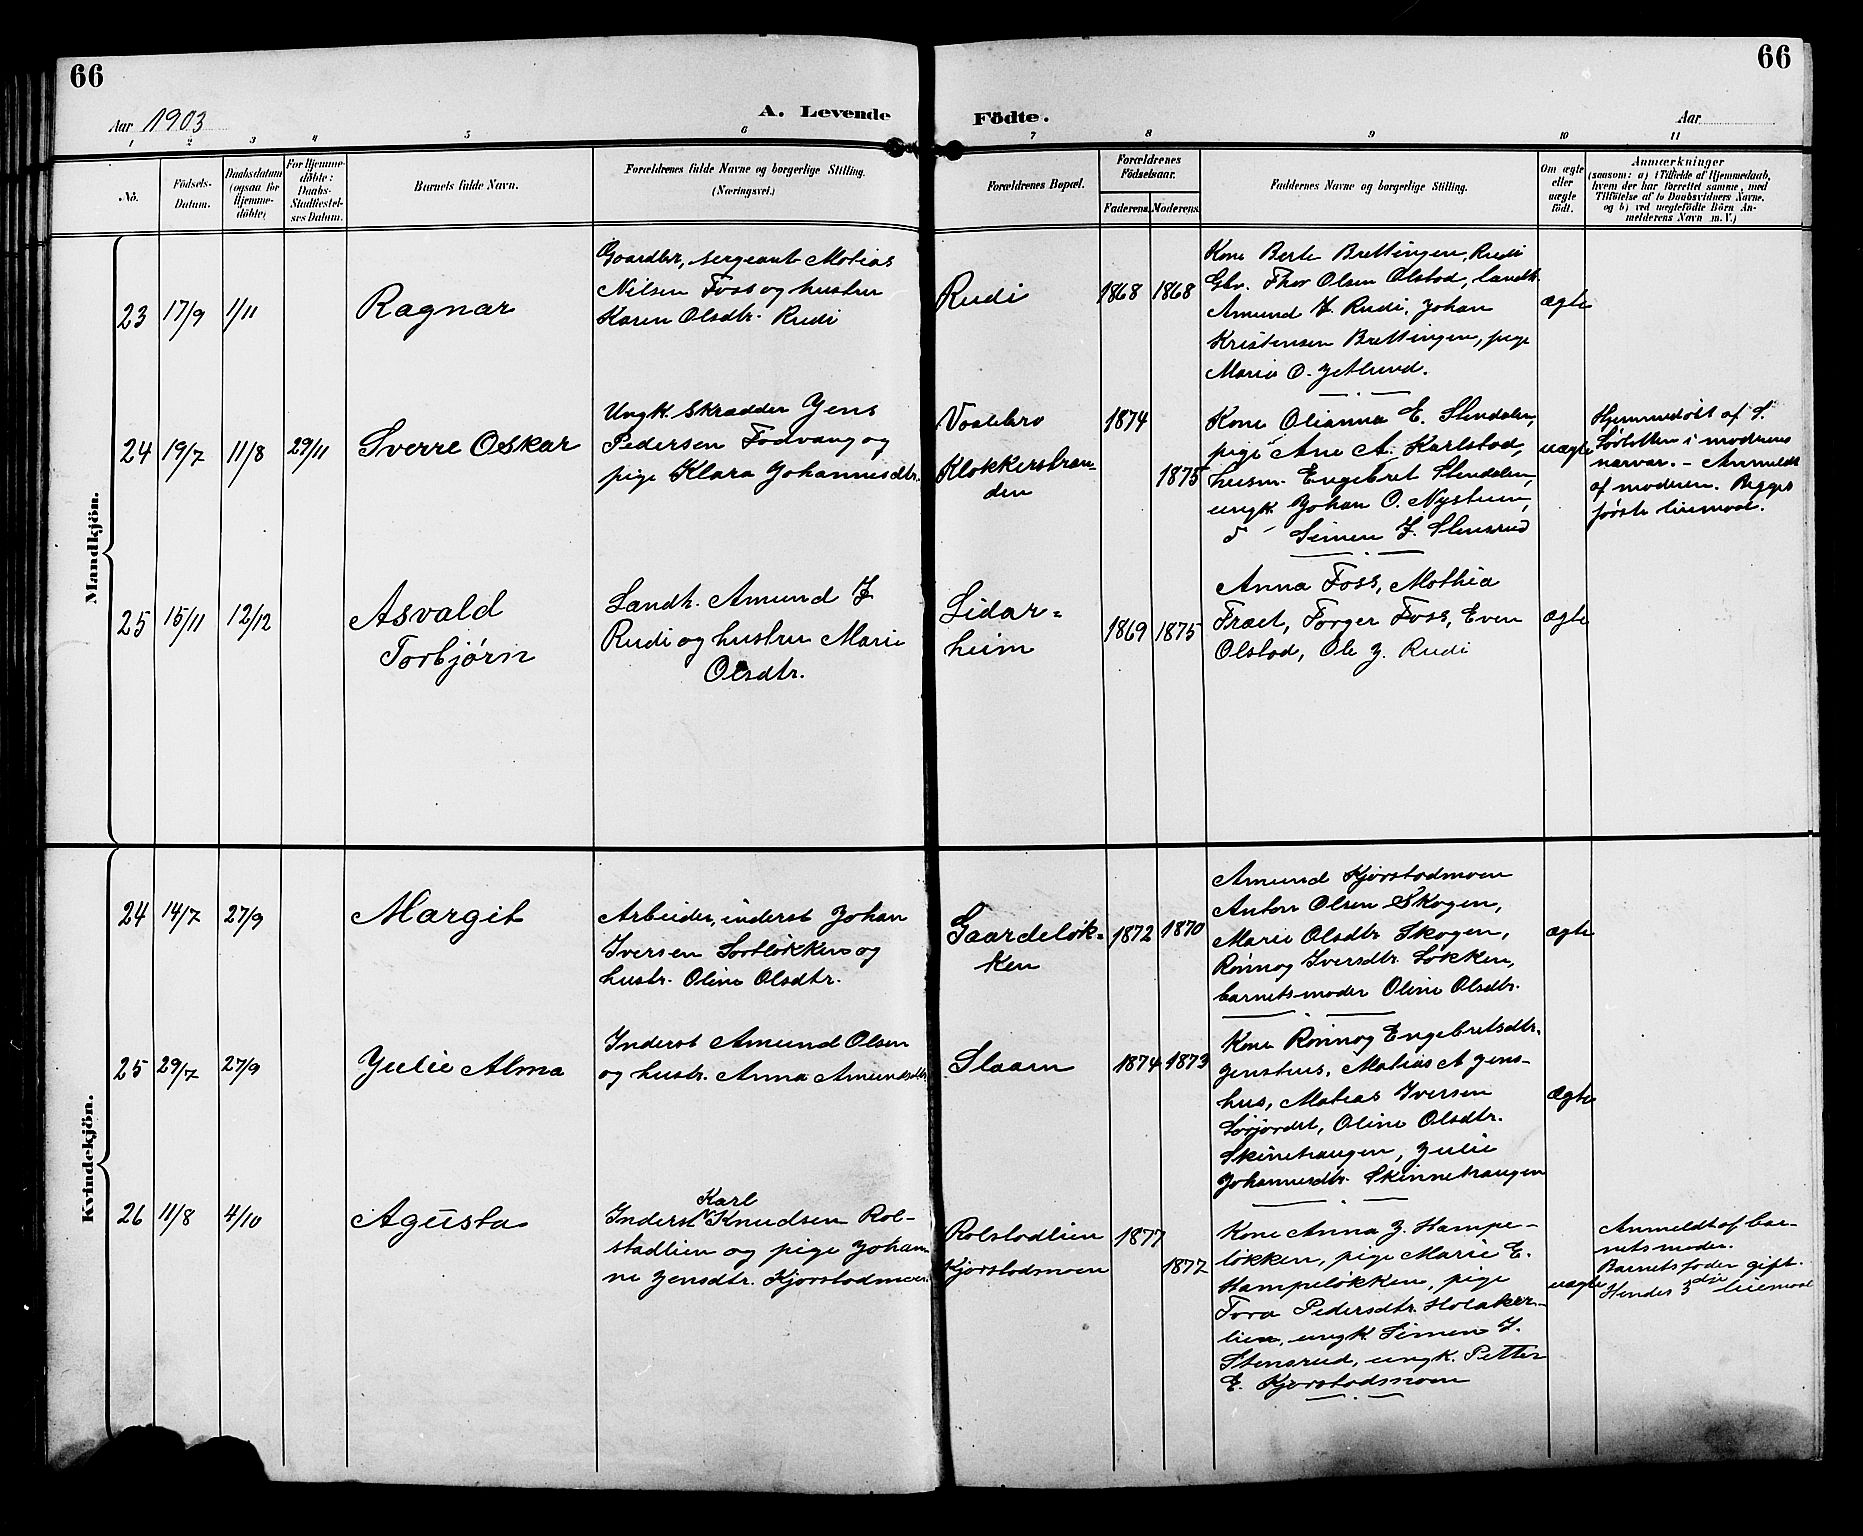 66
66
Aar 1903
A. Levende
Födte.
Aar
1 2 3 4 5 6 7 8 9 10 11
No.
Födsels-
Datum.
Daabsdatum
(ogsaa for
Hjemme-
döbte)
For Hjemme-
döbte:
Daabs-
Stadfæstel-
ses Datum.
Barnets fulde Navn.
Forældrenes fulde Navne og borgerlige Stilling.
(Næringsvei.)
Forældrenes Bopæl.
Forældrenes
Födselsaar.
Faderens. Moderens.
Faddernes Navne og borgerlige Stilling.
Om ægte
eller
uægte
födt.
Anmærkninger
(saasom: a) i Tilfælde af Hjemmedaab,
hvem der har forrettet samme, med
Tilföielse af to Daabsvidners Navne.
og b) ved uægtefödte Börn An-
melderens Navn m. V.)
Mandkjön.
23 17/9 1/11
Ragnar
Gaardbr, sergeant Matias
Nilsen Foss og hustru
Karen Olsdtr. Rudi
Rudi
1868 1868
Kone Berte Brettingen, Rudi
Gbr. Thor Olsen Olstad, landh.
Amund J. Rudi, Johan
Kristensen Brettingen, pige
Marie O. Jetlund.
ægte
24 19/7 11/8 29/11
Sverre Oskar
Ungk. skrædder Jens
Pedersen Fodvang og
pige Klara Johannesdtr.
Vaalebro
Klokkerstran-
den
1874
1875
Kone Olianna E. Slendalen,
pige Ane A. Karlstad,
husm. Engebret Slendalen,
ungk. Johan O. Nystuen,
Simen J. Stensrud
uægte
Hjemmedøbt af S.
i moderens
nærvær. - Anmeldt
af moderen. Begges
første leiemaal.
25 15/11 12/12
Asvald
Torbjørn
Landh. Amund J
Rudi og hustru Marie
Olsdtr.
Lidar-
heim
1869 1875
Anna Foss, Mathia
Fræt, Torger Foss, Even
Olstad, Ole J. Rudi
ægte
Kvindekjön.
24 14/7 27/9
Margit
Arbeider, inderst Johan
Iversen Sørløkken og
hustr. Oline Olsdtr.
Gaardeløk-
ken
1872 1870
Amund Kjørstadmoen
Anton Olsen Skogen,
Marie Olsdtr Skogen,
Rønnog Iversdtr. Løkken,
barnets moder Oline Olsdtr.
ægte
25 29/7 27/9
Julie Alma
Inderst Amund Olsen
og hustr. Anna Amundsdtr
Slaaen
1874 1873
Kone Rønnog Engebretsdtr.
Jenshus, Matias A Jens-
hus, Matias Iversen
Sørjordet, Oline Olsdtr.
Skinehaugen, Julie
Johannesdtr. Skinnehaugen
ægte
26 11/8 4/10
Agusta
Karl
Inderst Knudsen Rol-
stadlien og pige Johan-
ne Jensdtr. Kjørstadmoen
Rolstadlien
Kjørstadmoen
1877
1872
Kone Anna J. Hampe-
løkken, pige Marie E.
Hampeløkken, pige
Tora Pedersdtr. Holaker-
lien, ungk. Simen J.
Stensrud, ungk. Petter
E. Kjørstadsmoen
uægte
Anmeldt af bar-
nets moder.
Barnets fader gift.
Hendes 3die leiemaal